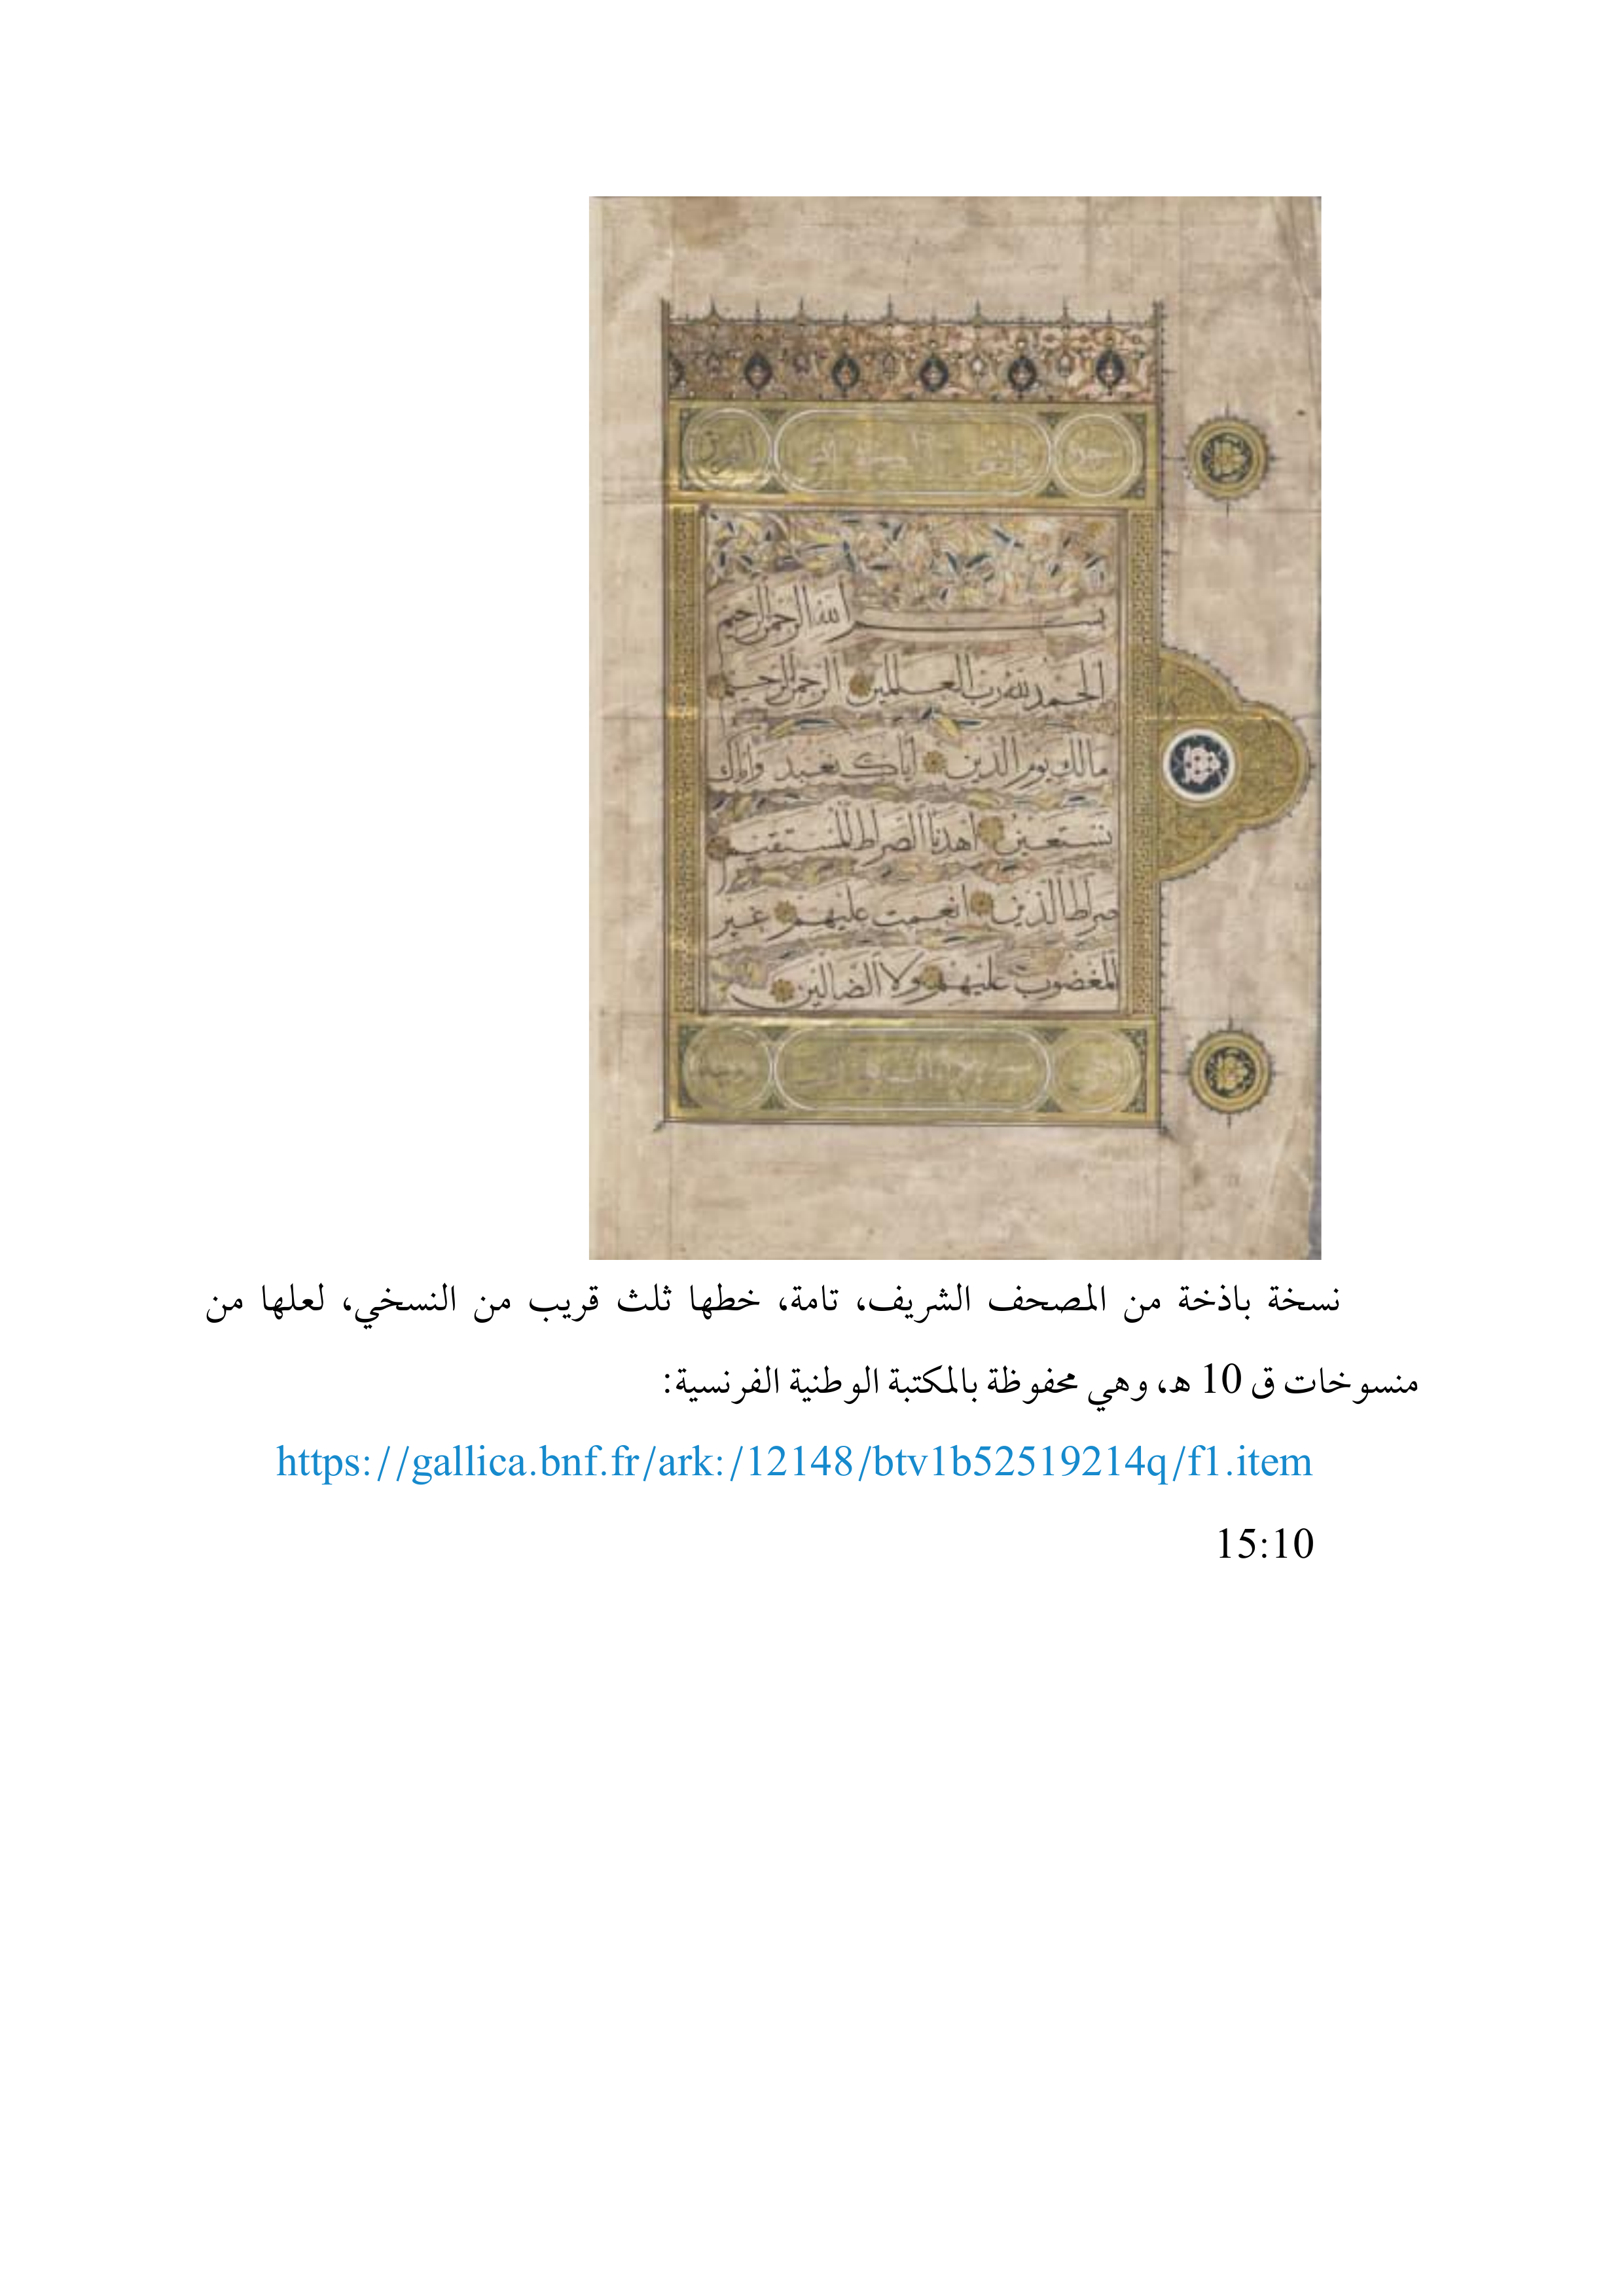 بسم الله الرحمن الرحيم
الحمد لله رب العلمين الرحمن الرحيم
مالك يوم الدين اياك نعبد واياك
نستعين اهدنا الصراط المستقيم
صراط الذين انعمت عليهم غير
المغضوب عليهم ولا الضالين
نسخة باذخة من المصحف الشريف، تامة، خطها ثلث قريب من النسخي، لعلها من
منسوخات ق 10 هـ، وهي محفوظة بالمكتبة الوطنية الفرنسية:
https://gallica.bnf.fr/ark:/12148/btv1b52519214q/f1.item
15:10